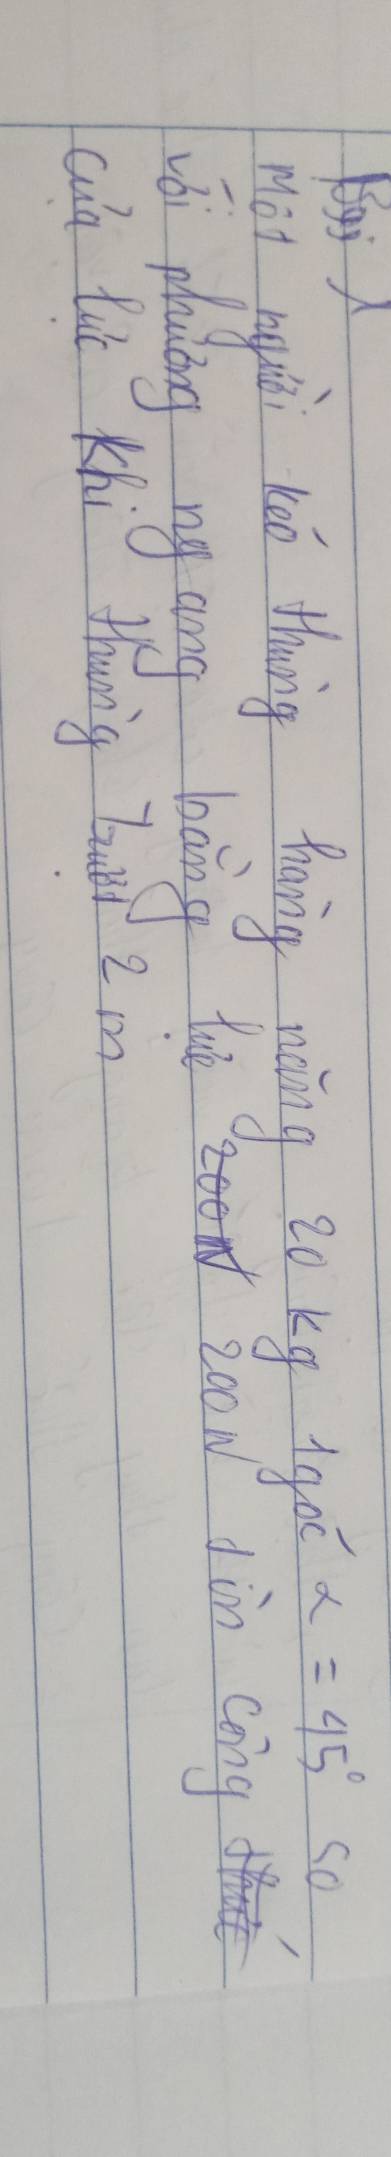 Bài 1
Một người kéo thùng hàng nặng 20 kg 1 góc α = 45° so
với phương ngang bằng lực 200N 200N tìn công
của lực khi thùng trượt 2 m